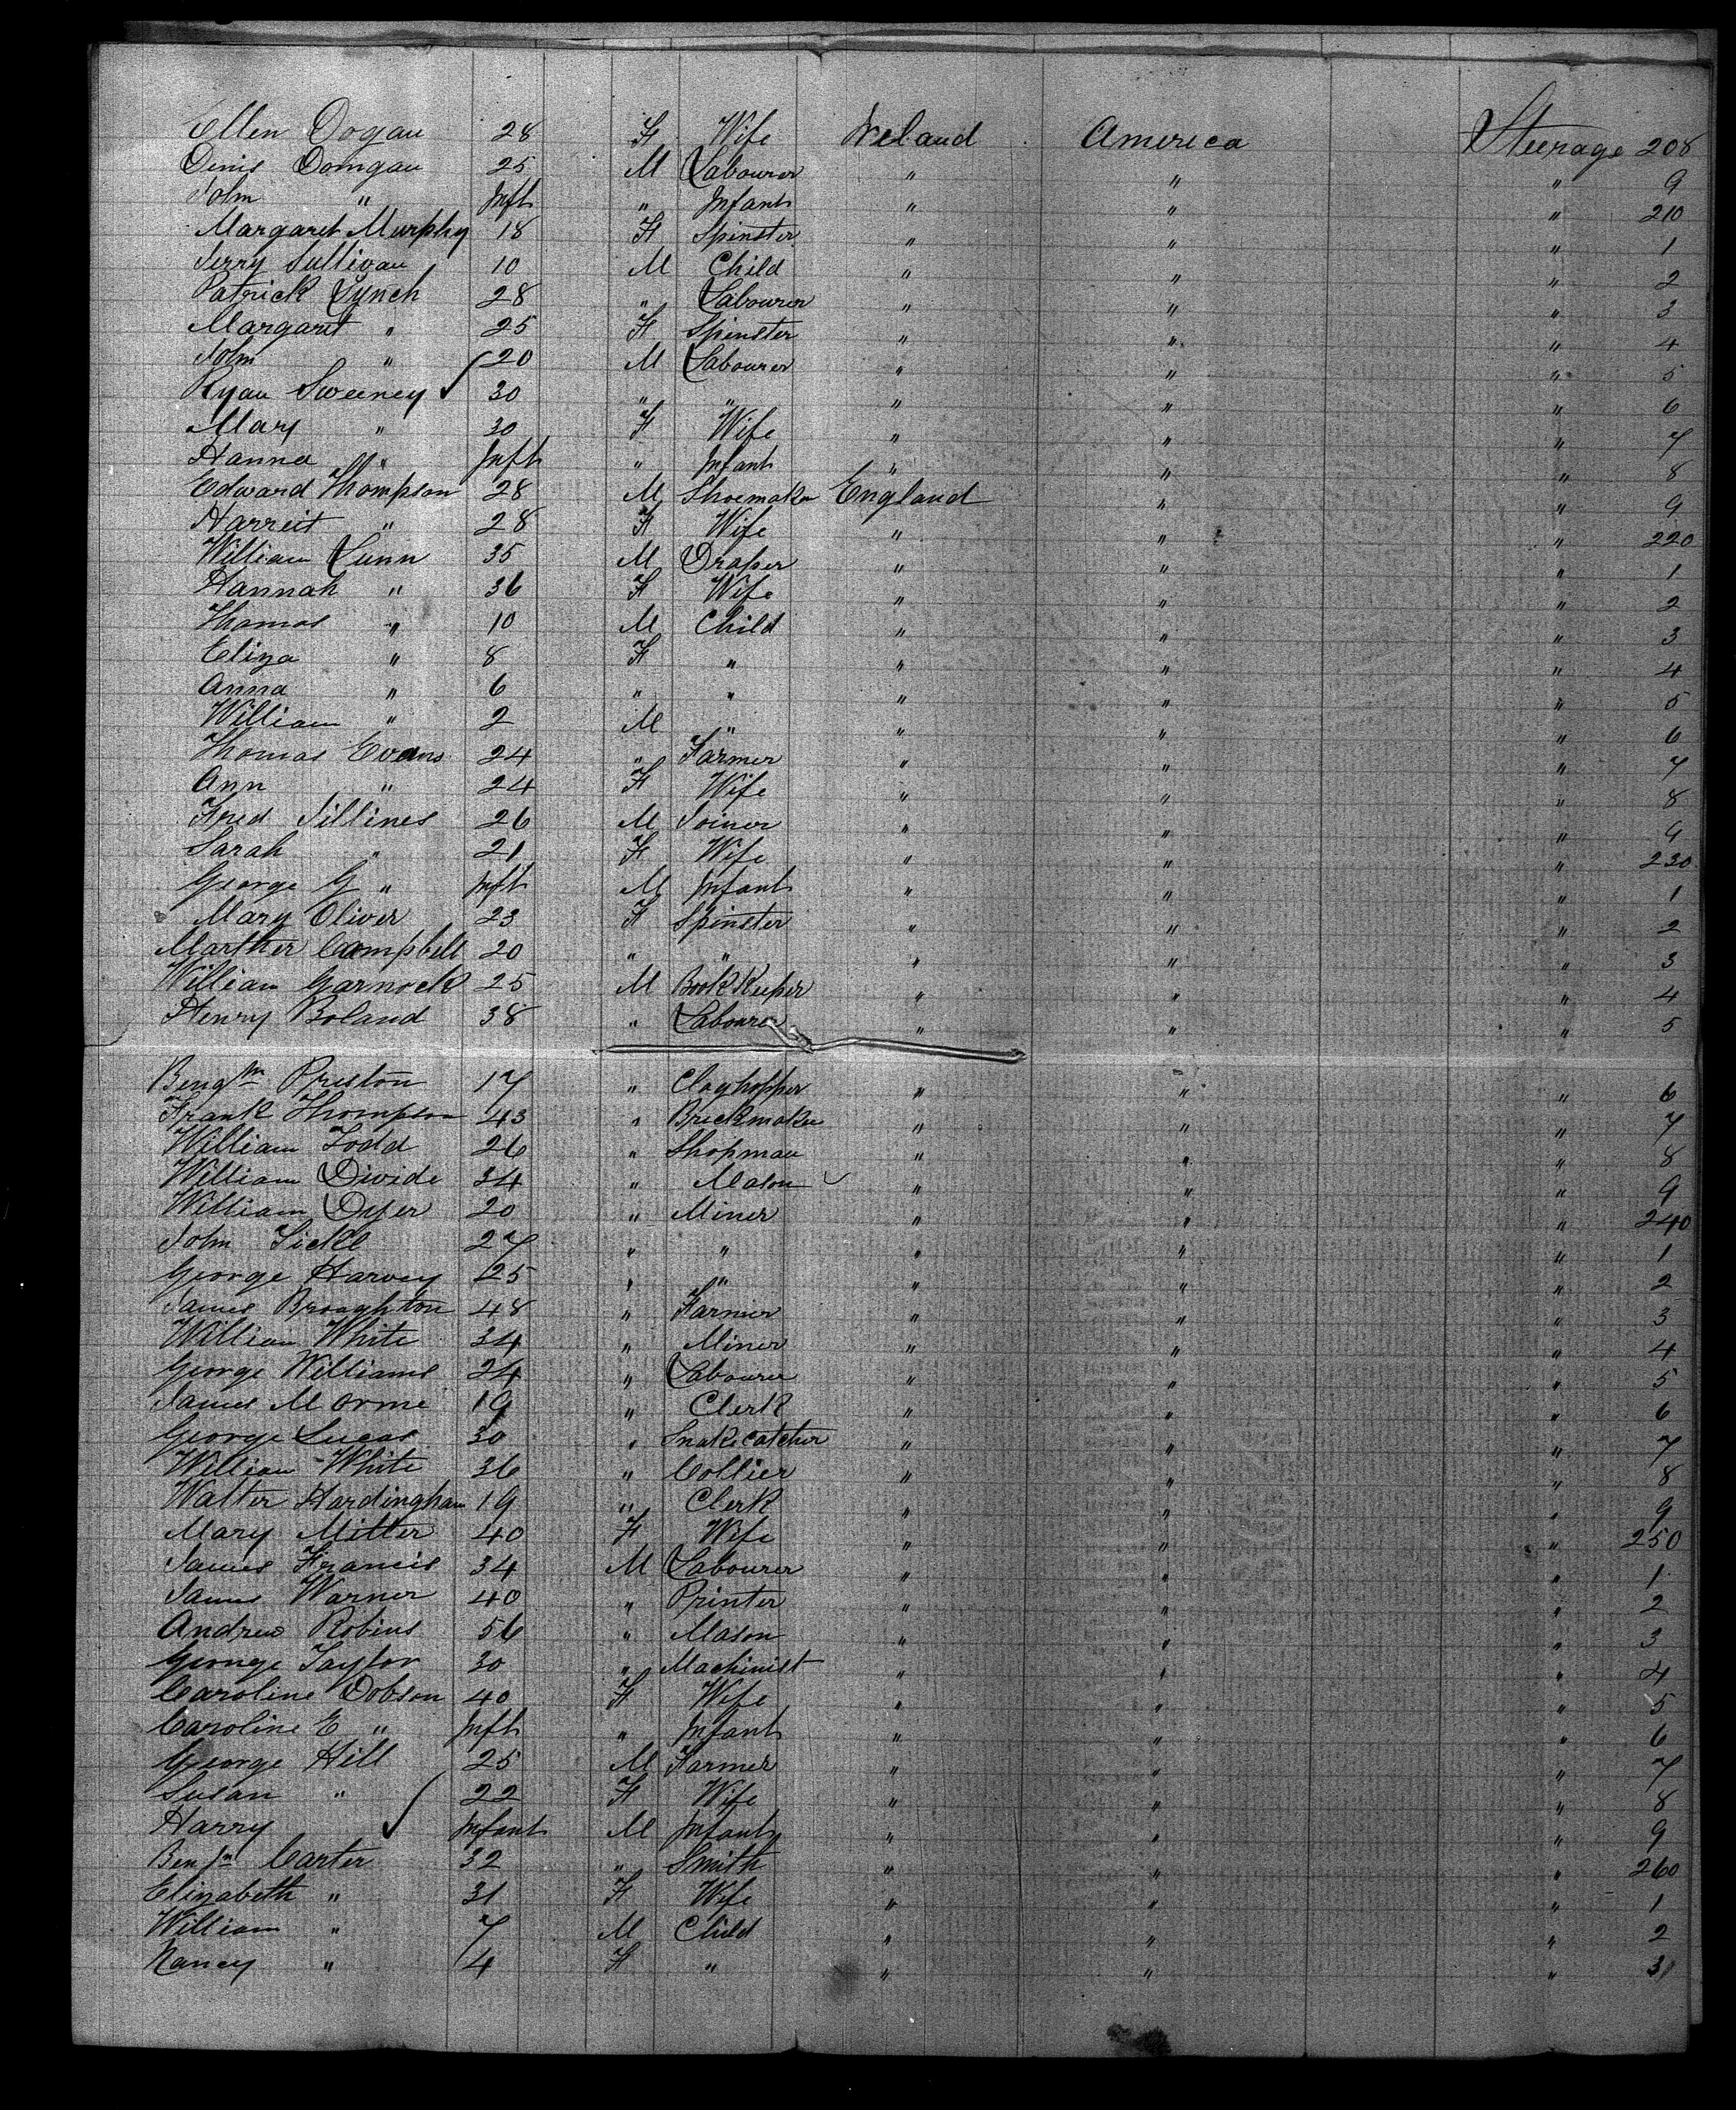 Ellen Dogan 28 F Wife Ireland America Steerage 208
Denis Domgan 25 M Labourer " " " 9
John " Inft " Infant " " " 210
Margaret Murphy 18 F Spinster " " " 1
Jerry Sullivan 10 M Child " " " 2
Patrick Lynch 28 " Labourer " " " 3
Margaret " 25 F Spinster " " " 4
John " 20 M Labourer " " " 5
Ryan Sweeney ✓ 30 " " " " " 6
Mary " 30 F Wife " " " 7
Hanna " Inft " Infant " " " 8
Edward Thompson 28 M Shoemaker England " " 9
Harreit " 28 F Wife " " " 220
William Lunn 35 M Draper " " " 1
Hannah " 36 F Wife " " " 2
Thomas " 10 M Child " " " 3
Eliza " 8 F " " " " 4
Anna " 6 " " " " " 5
William " 2 M " " " " 6
Thomas Evans 24 " Farmer " " " 7
Ann " 24 F Wife " " " 8
Fred Jillines 26 M Joiner " " " 9
Sarah " 21 F Wife " " " 230
George G " Inft M Infant " " " 1
Mary Oliver 23 F Spinster " " " 2
Marther Campbell 20 " " " " " 3
William Garnock 25 M Book Keeper " " " 4
Henry Boland 38 " Labourer " " " 5
Bengm Preston 17 " Clayhopper " " " 6
Frank Thompson 43 " Brickmaker " " " 7
William Todd 26 " Shopman " " " 8
William Divide 34 " Mason ✓ " " " 9
William Dyer 20 " Miner " " " 240
John Sickl 27 " " " " " 1
George Harvey 25 " " " " " 2
James Broughton 48 " Farmer " " " 3
William White 34 " Miner " " " 4
George Williams 24 " Labourer " " " 5
James M Orme 19 " Clerk " " " 6
George Lucas 30 " Snake catcher " " " 7
William White 36 " Collier " " " 8
Walter Hardingham 19 " Clerk " " " 9
Mary Mitter 40 F Wife " " " 250
James Francis 34 M Labourer " " " 1
James Warner 40 " Printer " " " 2
Andrew Robins 56 " Mason " " " 3
George Taylor 30 " Machinist " " " 4
Caroline Dobson 40 F Wife " " " 5
Caroline E " Inft " Infant " " " 6
George Hill 25 M Farmer " " " 7
Susan " 22 F Wife " " " 8
Harry ✓ Infant M Infant " " " 9
Benjn Carter 32 " Smith " " " 260
Elizabeth " 31 F Wife " " " 1
William " 7 M Child " " " 2
Nancy " 4 F " " " " 3